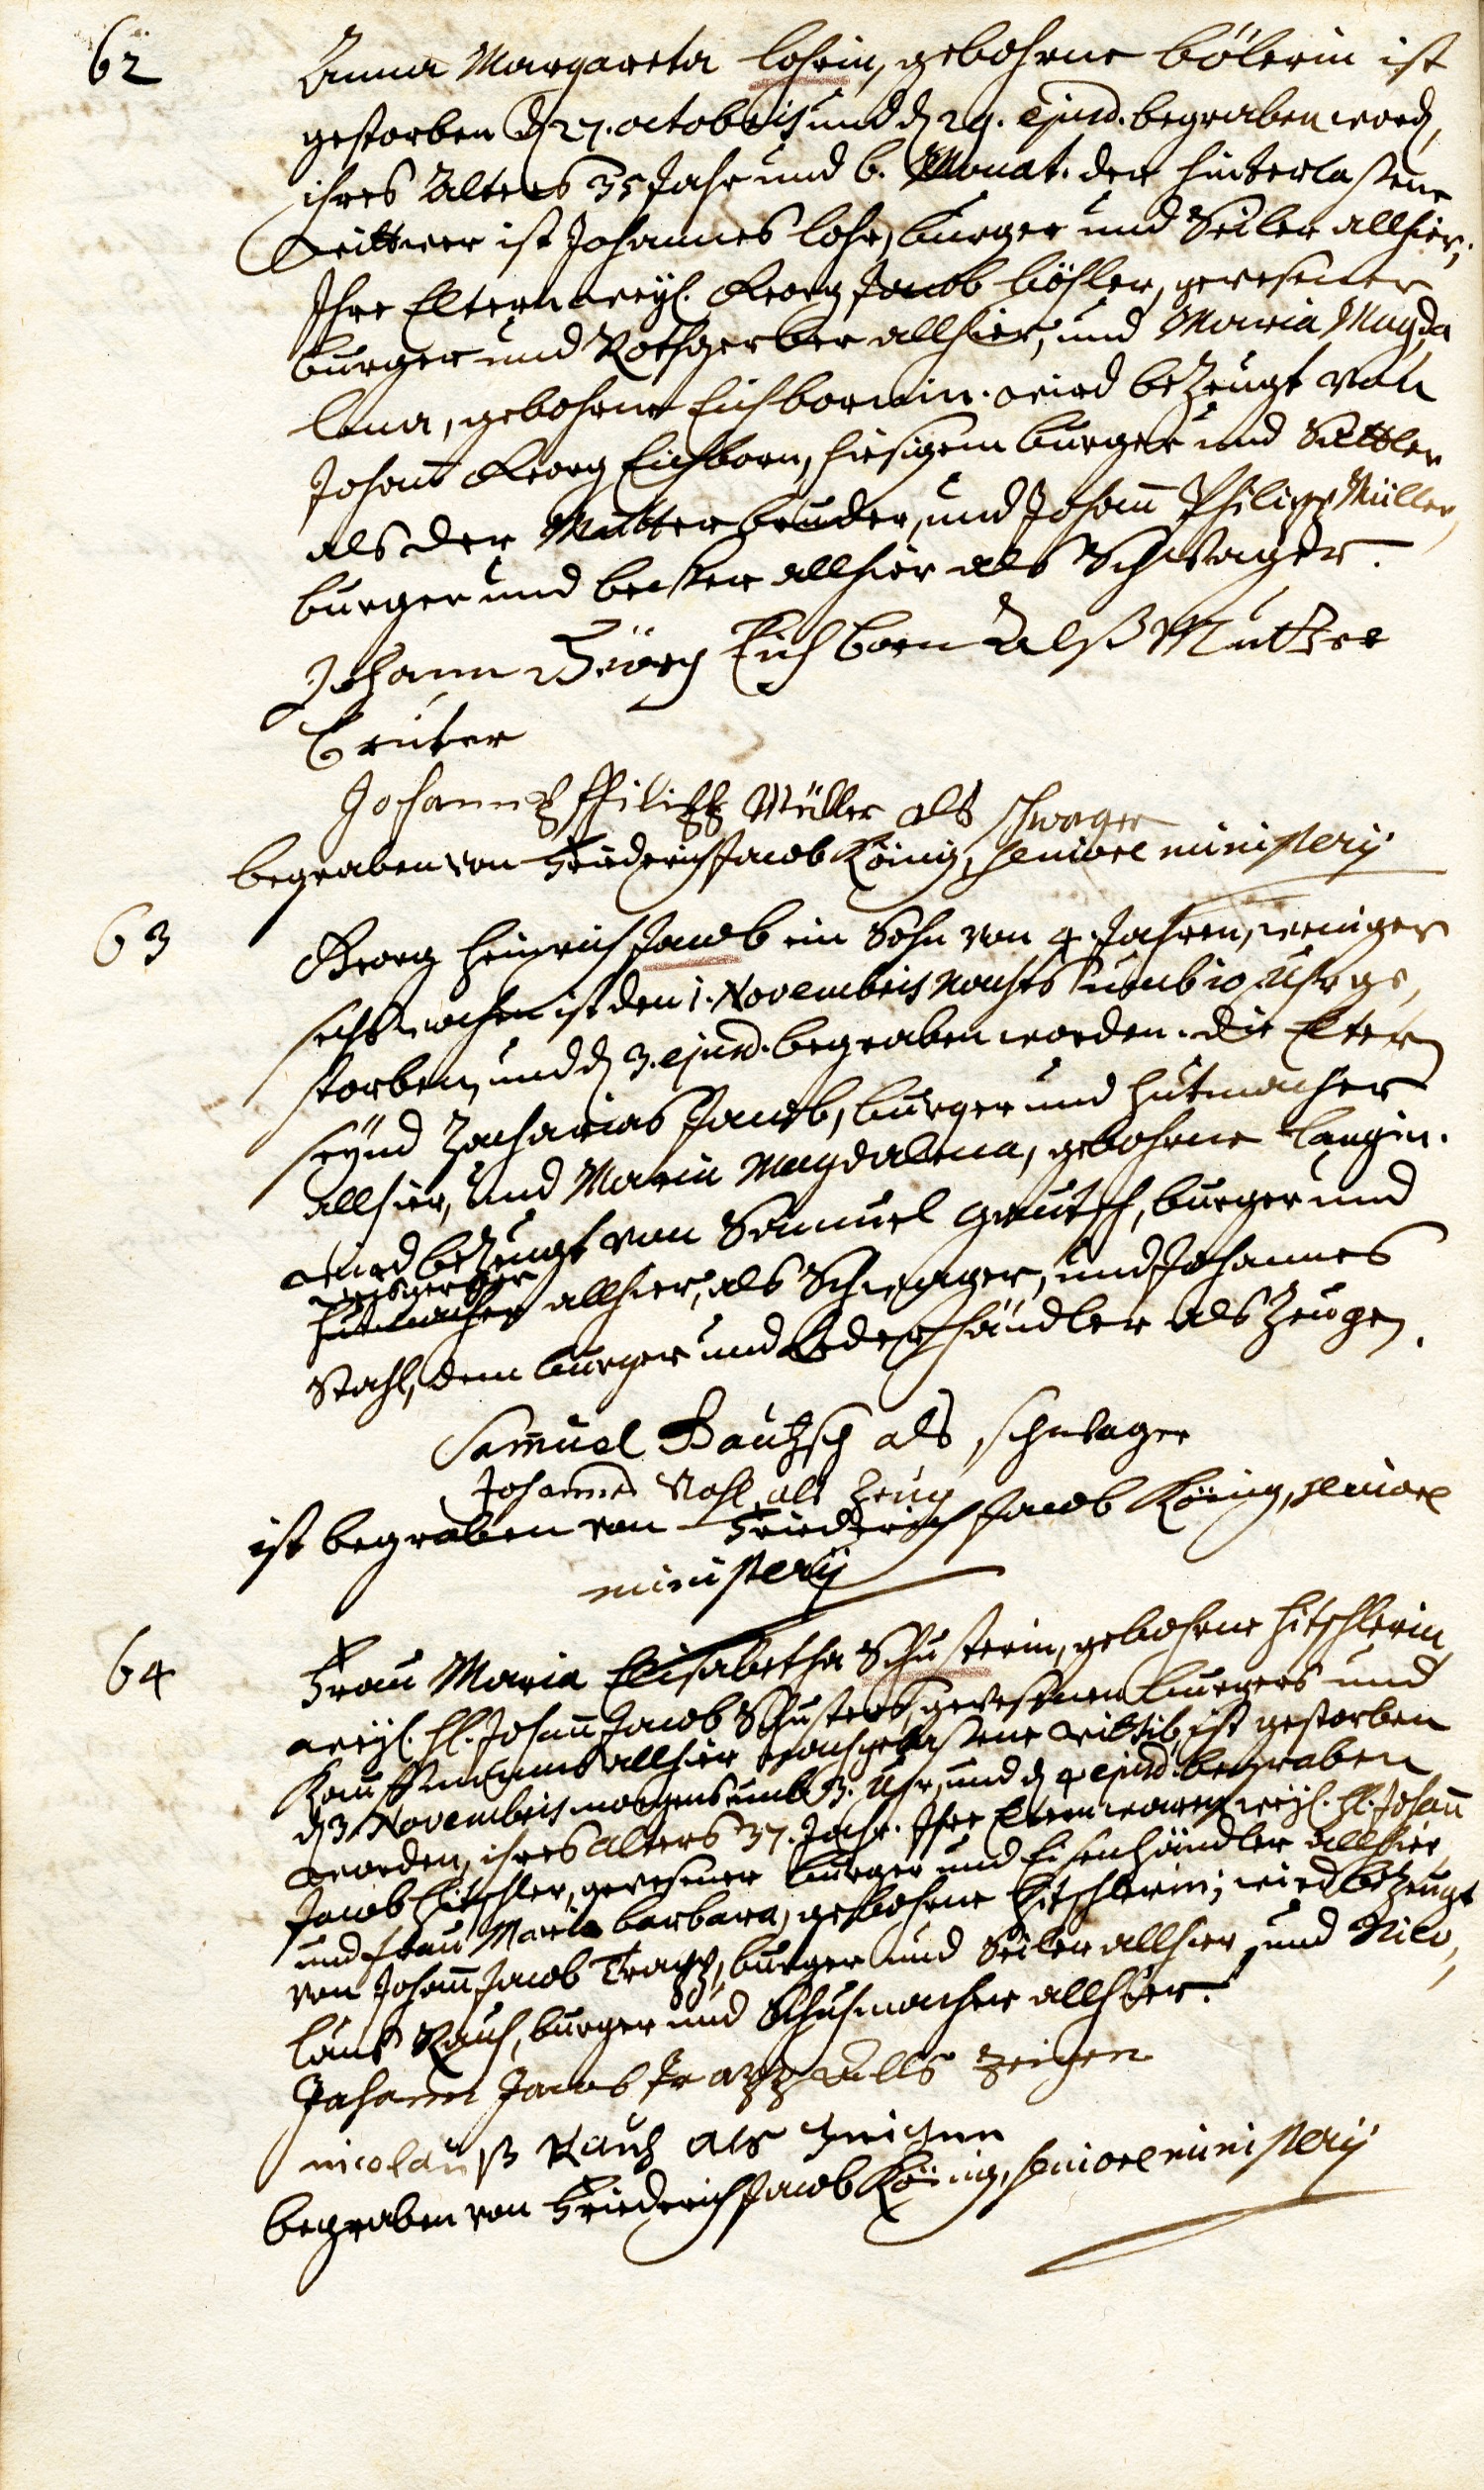 62
Anna Margareta Lohrin, gebohrne Bölerin ist
gestorben d. 27. octobris und d. 29. ejusd. begraben word,
ihres Alters 35 Jahr und 6. Monat. der hinterlaßene
Wittwer ist Johannes Lohr, burger und Seiler allhier,
Ihre Eltern weyl. Georg Jacob Böhler, gewesener
burger und Rothgerber allhier, und Maria Magda
lena, gebohrne Eichbornin. wird bezeugt von
Johann Georg Eichborn, hiesigem burger und Sattler
als der Mutter bruder, und Johann Philipp Müller,
burger und becker allhier als Schwager.
Johann Geörg Eichborn Alß Mutter
Bruter
Johann Philipp Müller als schwager
begraben von Friederich Jacob König, seniore ministerii
63
Georg Heinrich Jacob ein Sohn von 4. Jahren, weniger
sechs wochen ist den 1. Novembris nachts umb 10 Uhr ge,
storben, und d. 3. ejusd. begraben worden. die Eltern
seynd Zacharias Jacob, burger und hutmacher
allhier, und Maria Magdalena, gebohrne Langin.
wird bezeugt von Samuel Gautsch, burger und
weisgerber
hutmacher allhier, als Schwager, und Johannes
Stahl, dem burger und Lederhändler als Zeugen.
Samuel Bautzsch als schwager
Johannes Stahl als Zeug
ist begraben von Friederich Jacob König, seniore
ministerii
64
Frau Maria Elisabetha Schusterin, gebohrne Hitschlerin,
weyl. H. Johann Jacob Schusters, gewesenen burgers und
Kauffmanns allhier nachgelaßene Wittib, ist gestorben
d. 3 Novembris morgens umb 3. Uhr, und d. 4 ejusd. begraben
worden, ihres Alters 37. Jahr. Ihre Eltern waren weyl. H. Johann
Jacob Hitschler, gewesener burger und Eisenhändler allhier,
und Frau Maria barbara, gebohrne Hitschlerin; wird bezeugt
von Johann Jacob Trapp, burger und Seiler allhier, und Nico,
laus Rauch, burger und Schuhmacher allhier.
Johann Jacob Trapp Alls zeigen
nicolauß Rauch als zeigen
begraben von Friederich Jacob König, seniore ministerii